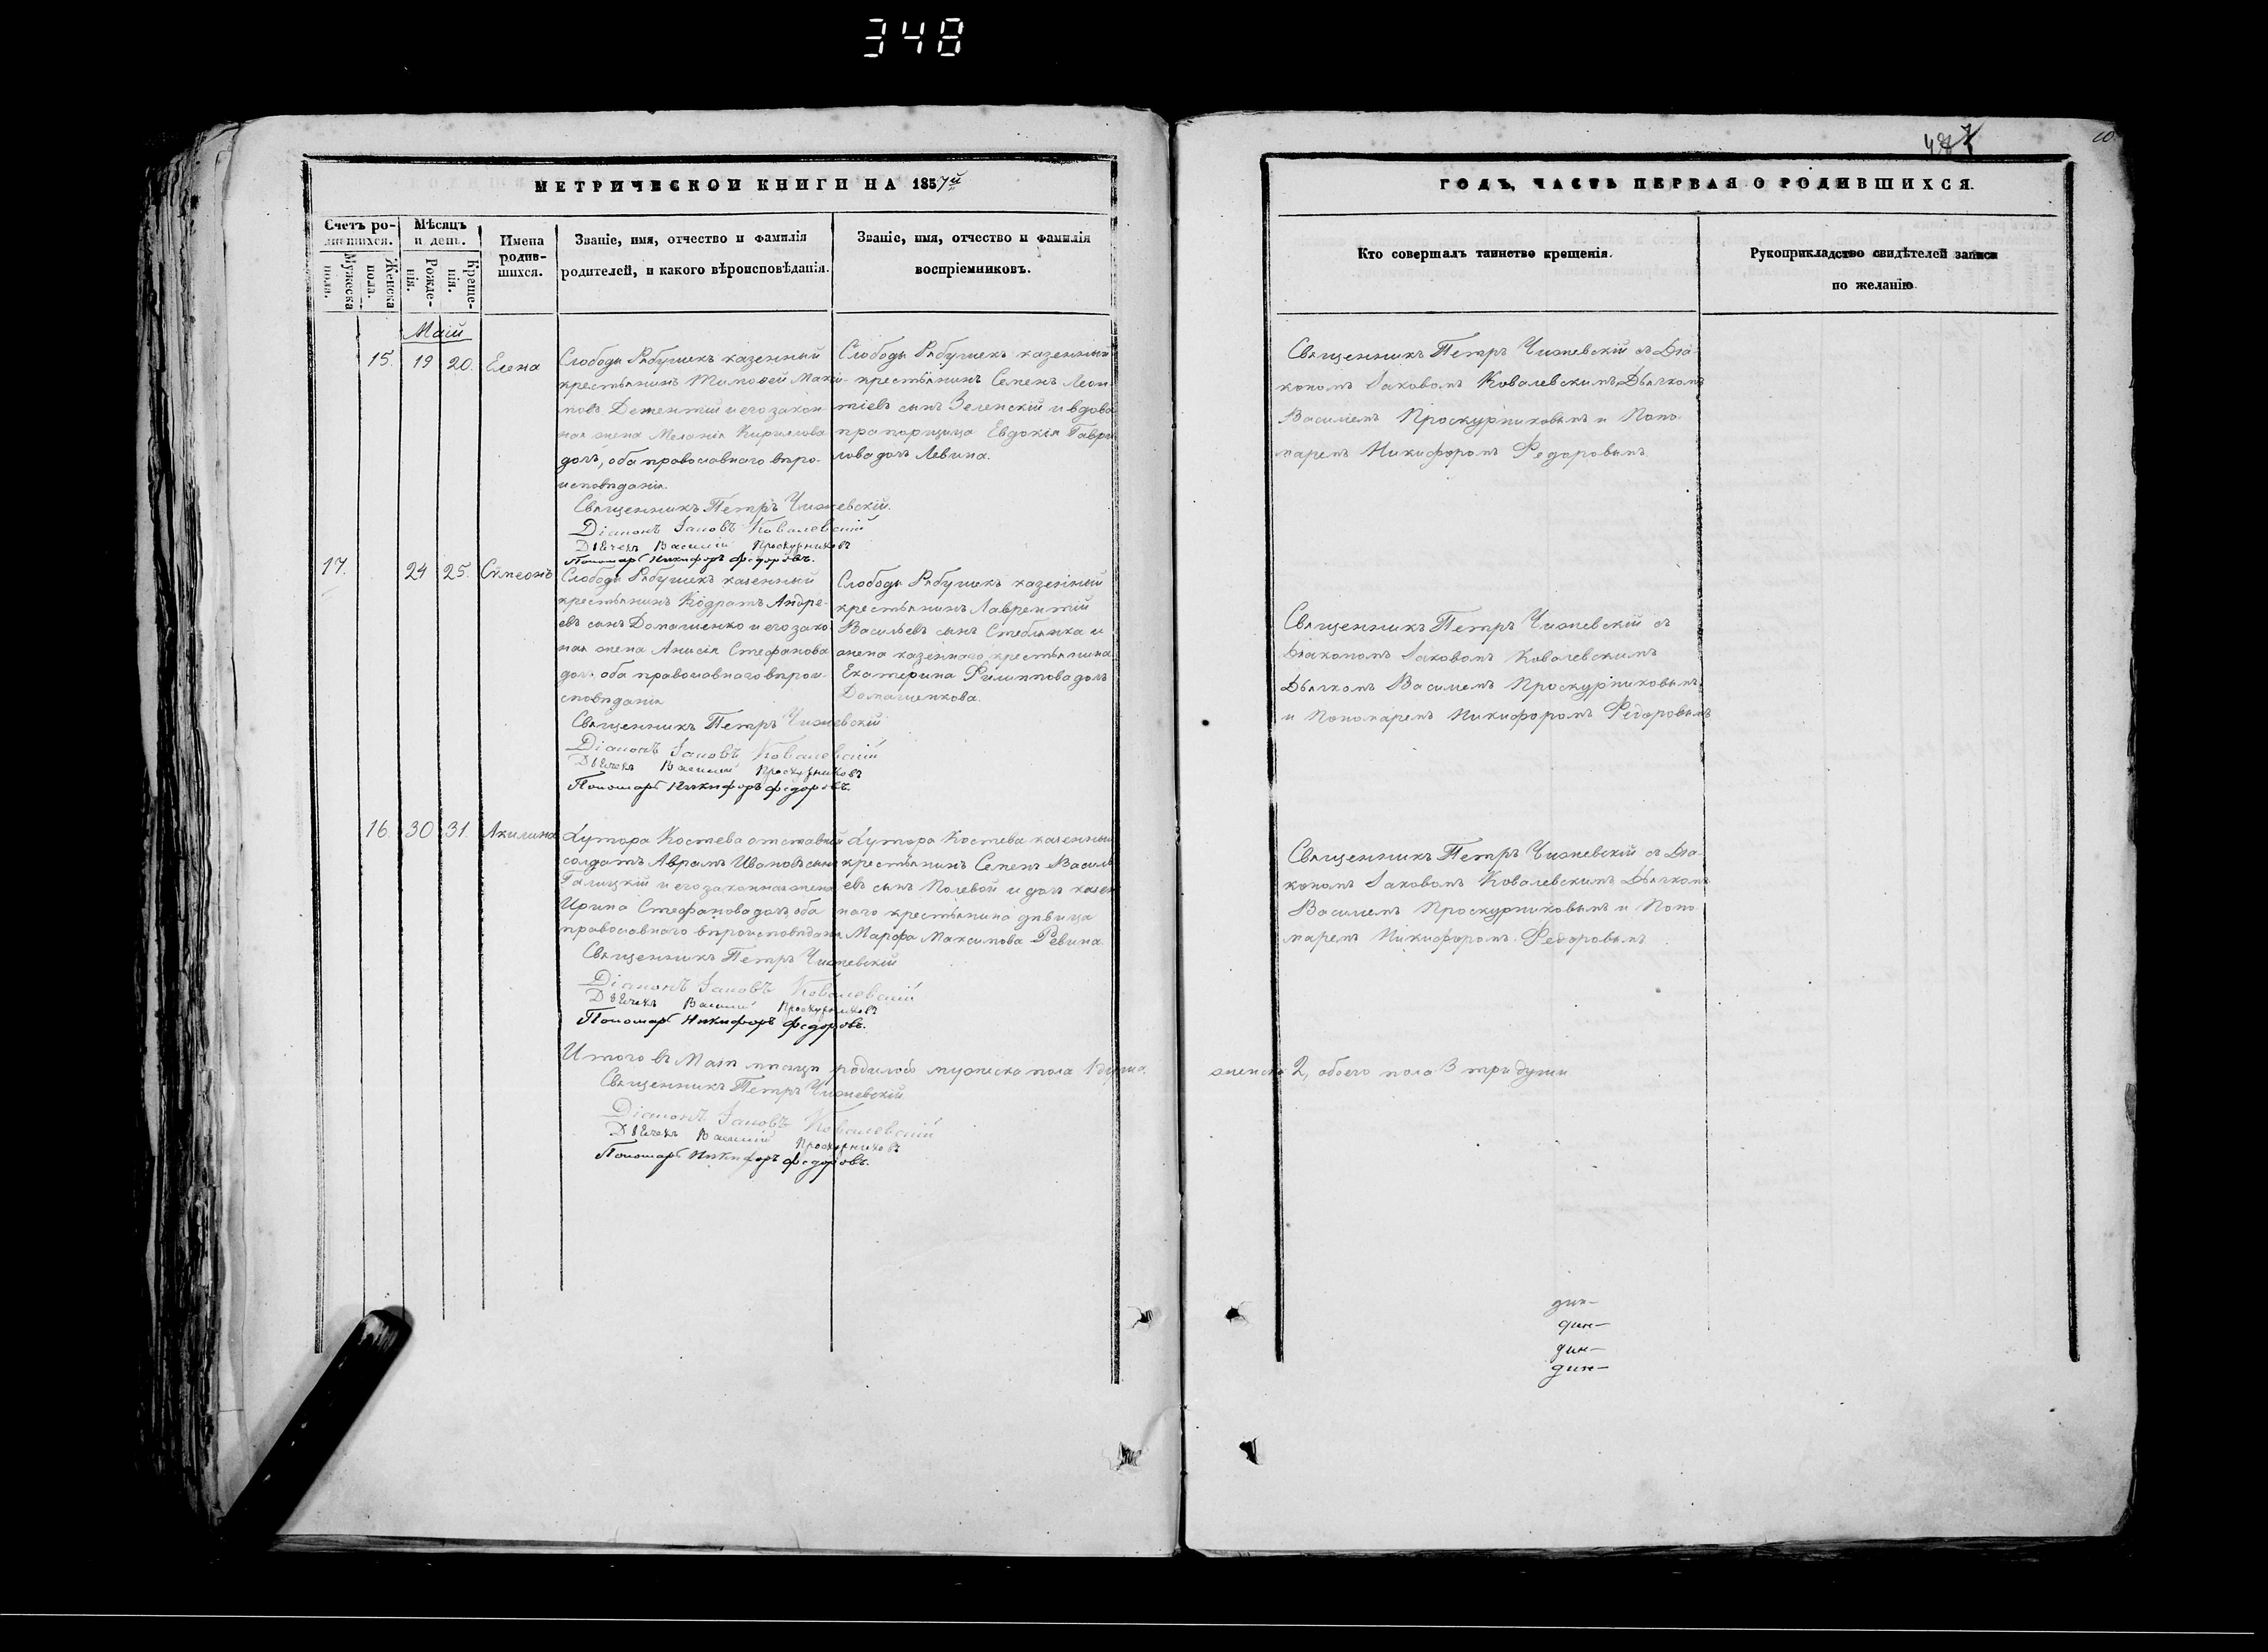 348
МЕТРИЧЕСКОЙ КНИГИ НА 1857й
Счетъ ро-
дившихся.
Мужеска
пола.
Женска
пола.
Мѣсяцъ
и день.
Рожде-
нія.
Креще-
нія.
Имена
родив-
шихся.
Званіе, имя, отчество и фамилія
родителей, и какого вѣроисповѣданія.
Званіе, имя, отчество и фамилія
воспріемниковъ.
Маій
15. 19 20. Елена
Слободы Рябушекъ казенный
крестьянинъ Тимоѳей
и его закон-
ная жена Меланія Кирилова
дочь, оба православнаго вѣро-
исповѣданія.
Слободы Рябушекъ казенный
крестьянинъ Семенъ Леон-
тіевъ сынъ Зеленскій и вдова
прапорщица Евдокія Гаври-
лова дочь Левина.
Священникъ Петръ Чижевскій.
Діаконъ Іаковъ Ковалевскій
Дьячекъ Василій Проскурниковъ
Пономарь Никифоръ Федоровъ.
17. 24 25. Сѵмеонъ
Слободы Рябушекъ казенный
крестьянинъ Кодратъ Андре-
евъ сынъ Домашенко и его зако-
ная жена Анисія Стефанова
дочь оба православнаго вѣрои-
сповѣданія
Слободы Рябушекъ казенный
крестьянинъ Лаврентій
Васильевъ сынъ Стеблянка и
жена казеннаго крестьянина
Екатерина Филиппова дочь
Домашенкова.
Священникъ Петръ Чижевскій
Діаконъ Іаковъ Ковалевскій
Дьячекъ Василій Проскурниковъ
Пономарь Никифоръ Федоровъ.
16. 30 31. Акилина
Хутора Костева отставный
солдатъ Аврамъ Ивановъ сынъ
Галицкій и его законная жена
Ирина Стефанова дочь, оба
православнаго вѣроисповѣданія
Хутора Костева казенный
крестьянинъ Семенъ Василь-
евъ сынъ Полевой и дочь казен-
наго крестьянина дѣвица
Марфа Максимова Ревина.
Священникъ Петръ Чижевскій
Діаконъ Іаковъ Ковалевскій
Дьячекъ Василій Проскурниковъ
Пономарь Никифоръ Федоровъ.
Итого въ Маіи мѣсяцѣ родилось мужеска пола 1 душа.
Священникъ Петръ Чижевскій.
Діаконъ Іаковъ Ковалевскій
Дьячекъ Василій Проскурниковъ
Пономарь Никифоръ Федоровъ.
ГОДЪ, ЧАСТЬ ПЕРВАЯ О РОДИВШИХСЯ.
Кто совершалъ таинство крещенія.
Рукоприкладство свидѣтелей записи
по желанію
Священникъ Петръ Чижевскій съ Діа-
кономъ Іаковомъ Ковалевскимъ, Дьячкомъ
Василіемъ Проскурниковымъ и Поно-
маремъ Никифоромъ Федоровымъ
Священникъ Петръ Чижевскій съ
Діакономъ Іаковомъ Ковалевскимъ
Дьячкомъ Василіемъ Проскурниковымъ
и Пономаремъ Никифоромъ Федоровымъ
Священникъ Петръ Чижевскій съ Діа-
кономъ Іаковомъ Ковалевскимъ Дьячкомъ
Василіемъ Проскурниковымъ и Поно-
маремъ Никифоромъ Федоровымъ
женска 2, обоего пола 3 три души